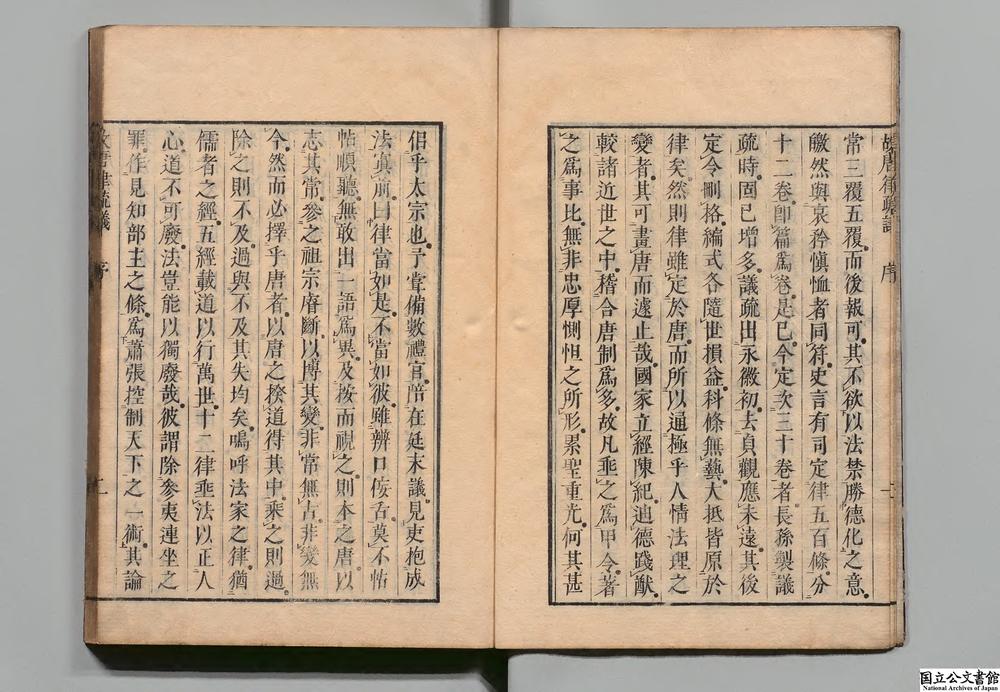 故唐律疏議 序 二
常三覆五覆而後報可其不欲以法禁勝德化之意
皦然與哀矜愼恤者同符史言有司定律五百條分
十二卷卽篇爲卷是已今定次三十卷者長孫製議
疏時固已增多議疏出永徽初去貞觀應未遠其後
定令刪格編式各隨世損益科條無藝大抵皆原於
律矣然則律雖定於唐而所以通極乎人情法理之
變者其可畫唐而遽止哉國家立經陳紀迪德踐猷
較諸近世之中稽合唐制爲多故凡垂之爲甲令著
之爲事比無非忠厚惻怛之所形累聖重光何其甚
佀乎太宗也予嘗備數禮官陪在廷末議見吏抱成
法寘前曰律當如是不當如彼雖辨口佞舌莫不怗
怗順聽無敢出一語爲異及按而視之則本之唐以
志其常參之祖宗睿斷以博其變非常無古非變無
今然而必擇乎唐者以唐之揆道得其中乘之則過
除之則不及過與不及其失均矣嗚呼法家之律猶
儒者之經五經載道以行萬世十二律垂法以正人
心道不可廢法豈能以獨廢哉彼謂除參夷連坐之
罪作見知部主之條爲蕭張控制天下之一術其論
故唐律疏議 序 二
国立公文書館
National Archives of Japan